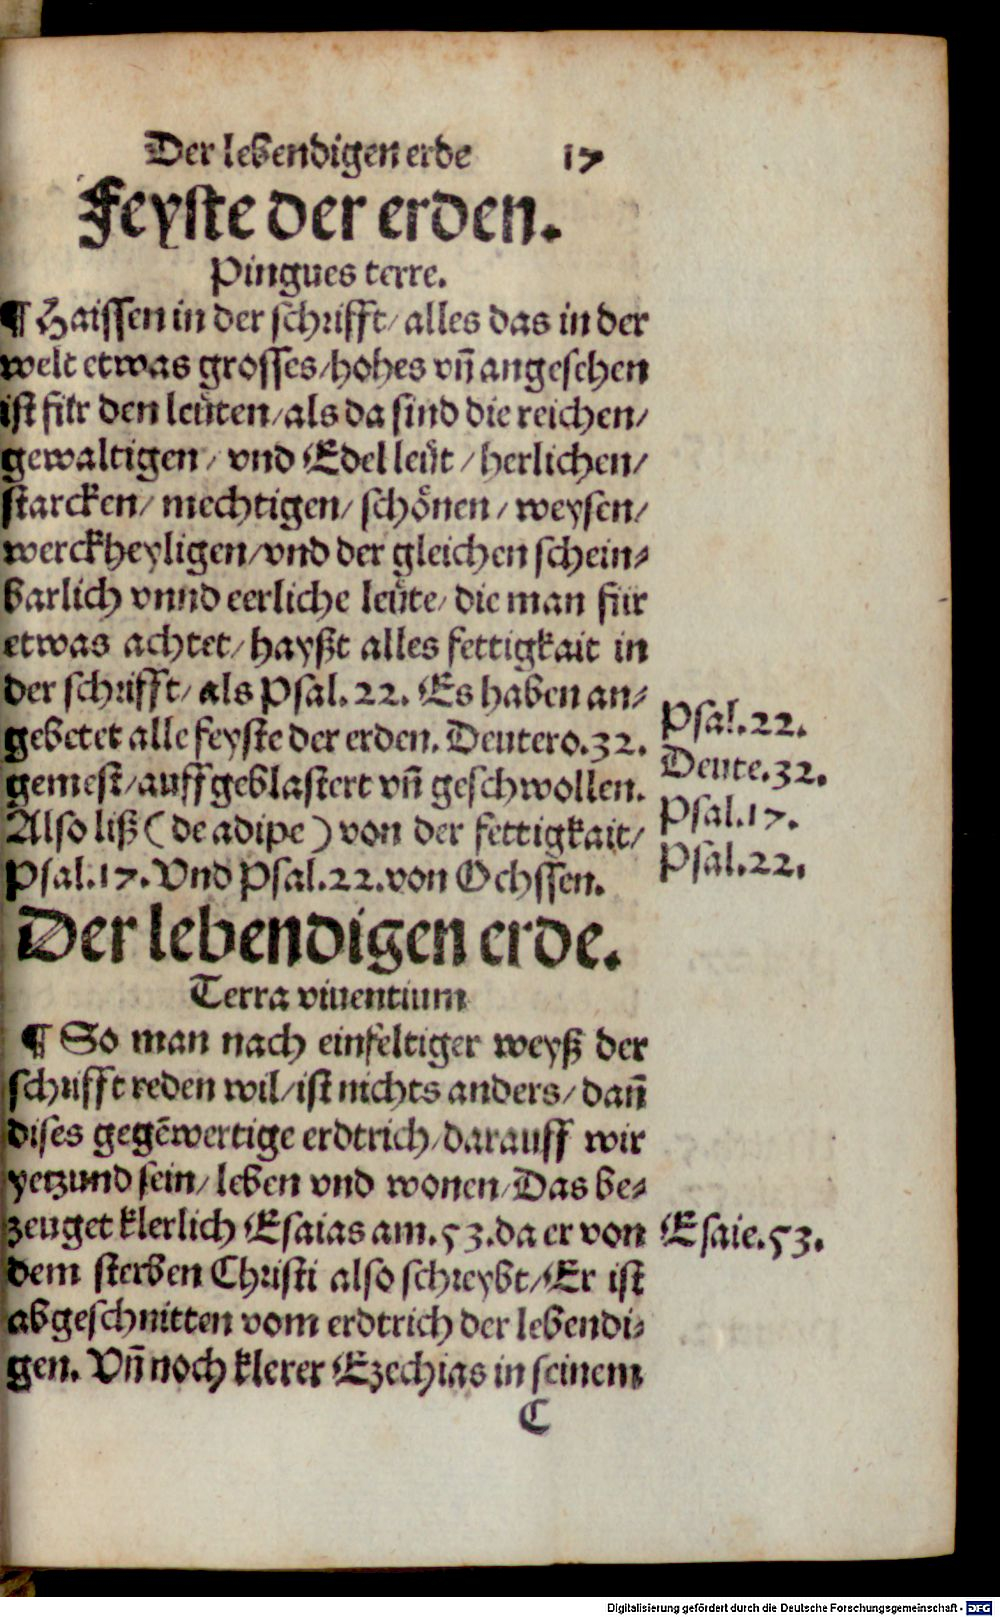 Der lebendigen erde 17
Feyste der erden.
Pingues terre.
¶ Haissen in der schrifft/ alles das in der
welt etwas grosses/hohes vn̄ angesehen
ist für den leüten/als da sind die reichen/
gewaltigen/ vnd Edel leüt/ herlichen/
starcken/ mechtigen/ schönen/ weysen/
werckheyligen/vnd der gleichen schein⸗
barlich vnnd eerliche leüte/ die man für
etwas achtet/ hayßt alles fettigkait in
der schrifft/ als Psal. 22. Es haben an⸗
gebetet alle feyste der erden. Deutero.32.
gemest/auffgeblastert vn̄ geschwollen.
Also liß (de adipe) von der fettigkait/
Psal.17. Vnd Psal.22.von Ochssen.
Psal.22.
Deute.32.
Psal.17.
Psal.22.
Der lebendigen erde.
Terra viuentium
¶ So man nach einfeltiger weyß der
schrifft reden wil/ist nichts anders/ dan̄
dises gegēwertige erdtrich/darauff wir
yetzund sein/ leben vnd wonen/Das be⸗
zeuget klerlich Esaias am.53.da er von
dem sterben Christi also schreybt/Er ist
abgeschnitten vom erdtrich der lebendi⸗
gen. Vn̄ noch klerer Ezechias in seinem
Esaie.53.
C
Digitalisierung gefördert durch die Deutsche Forschungsgemeinschaft - DFG